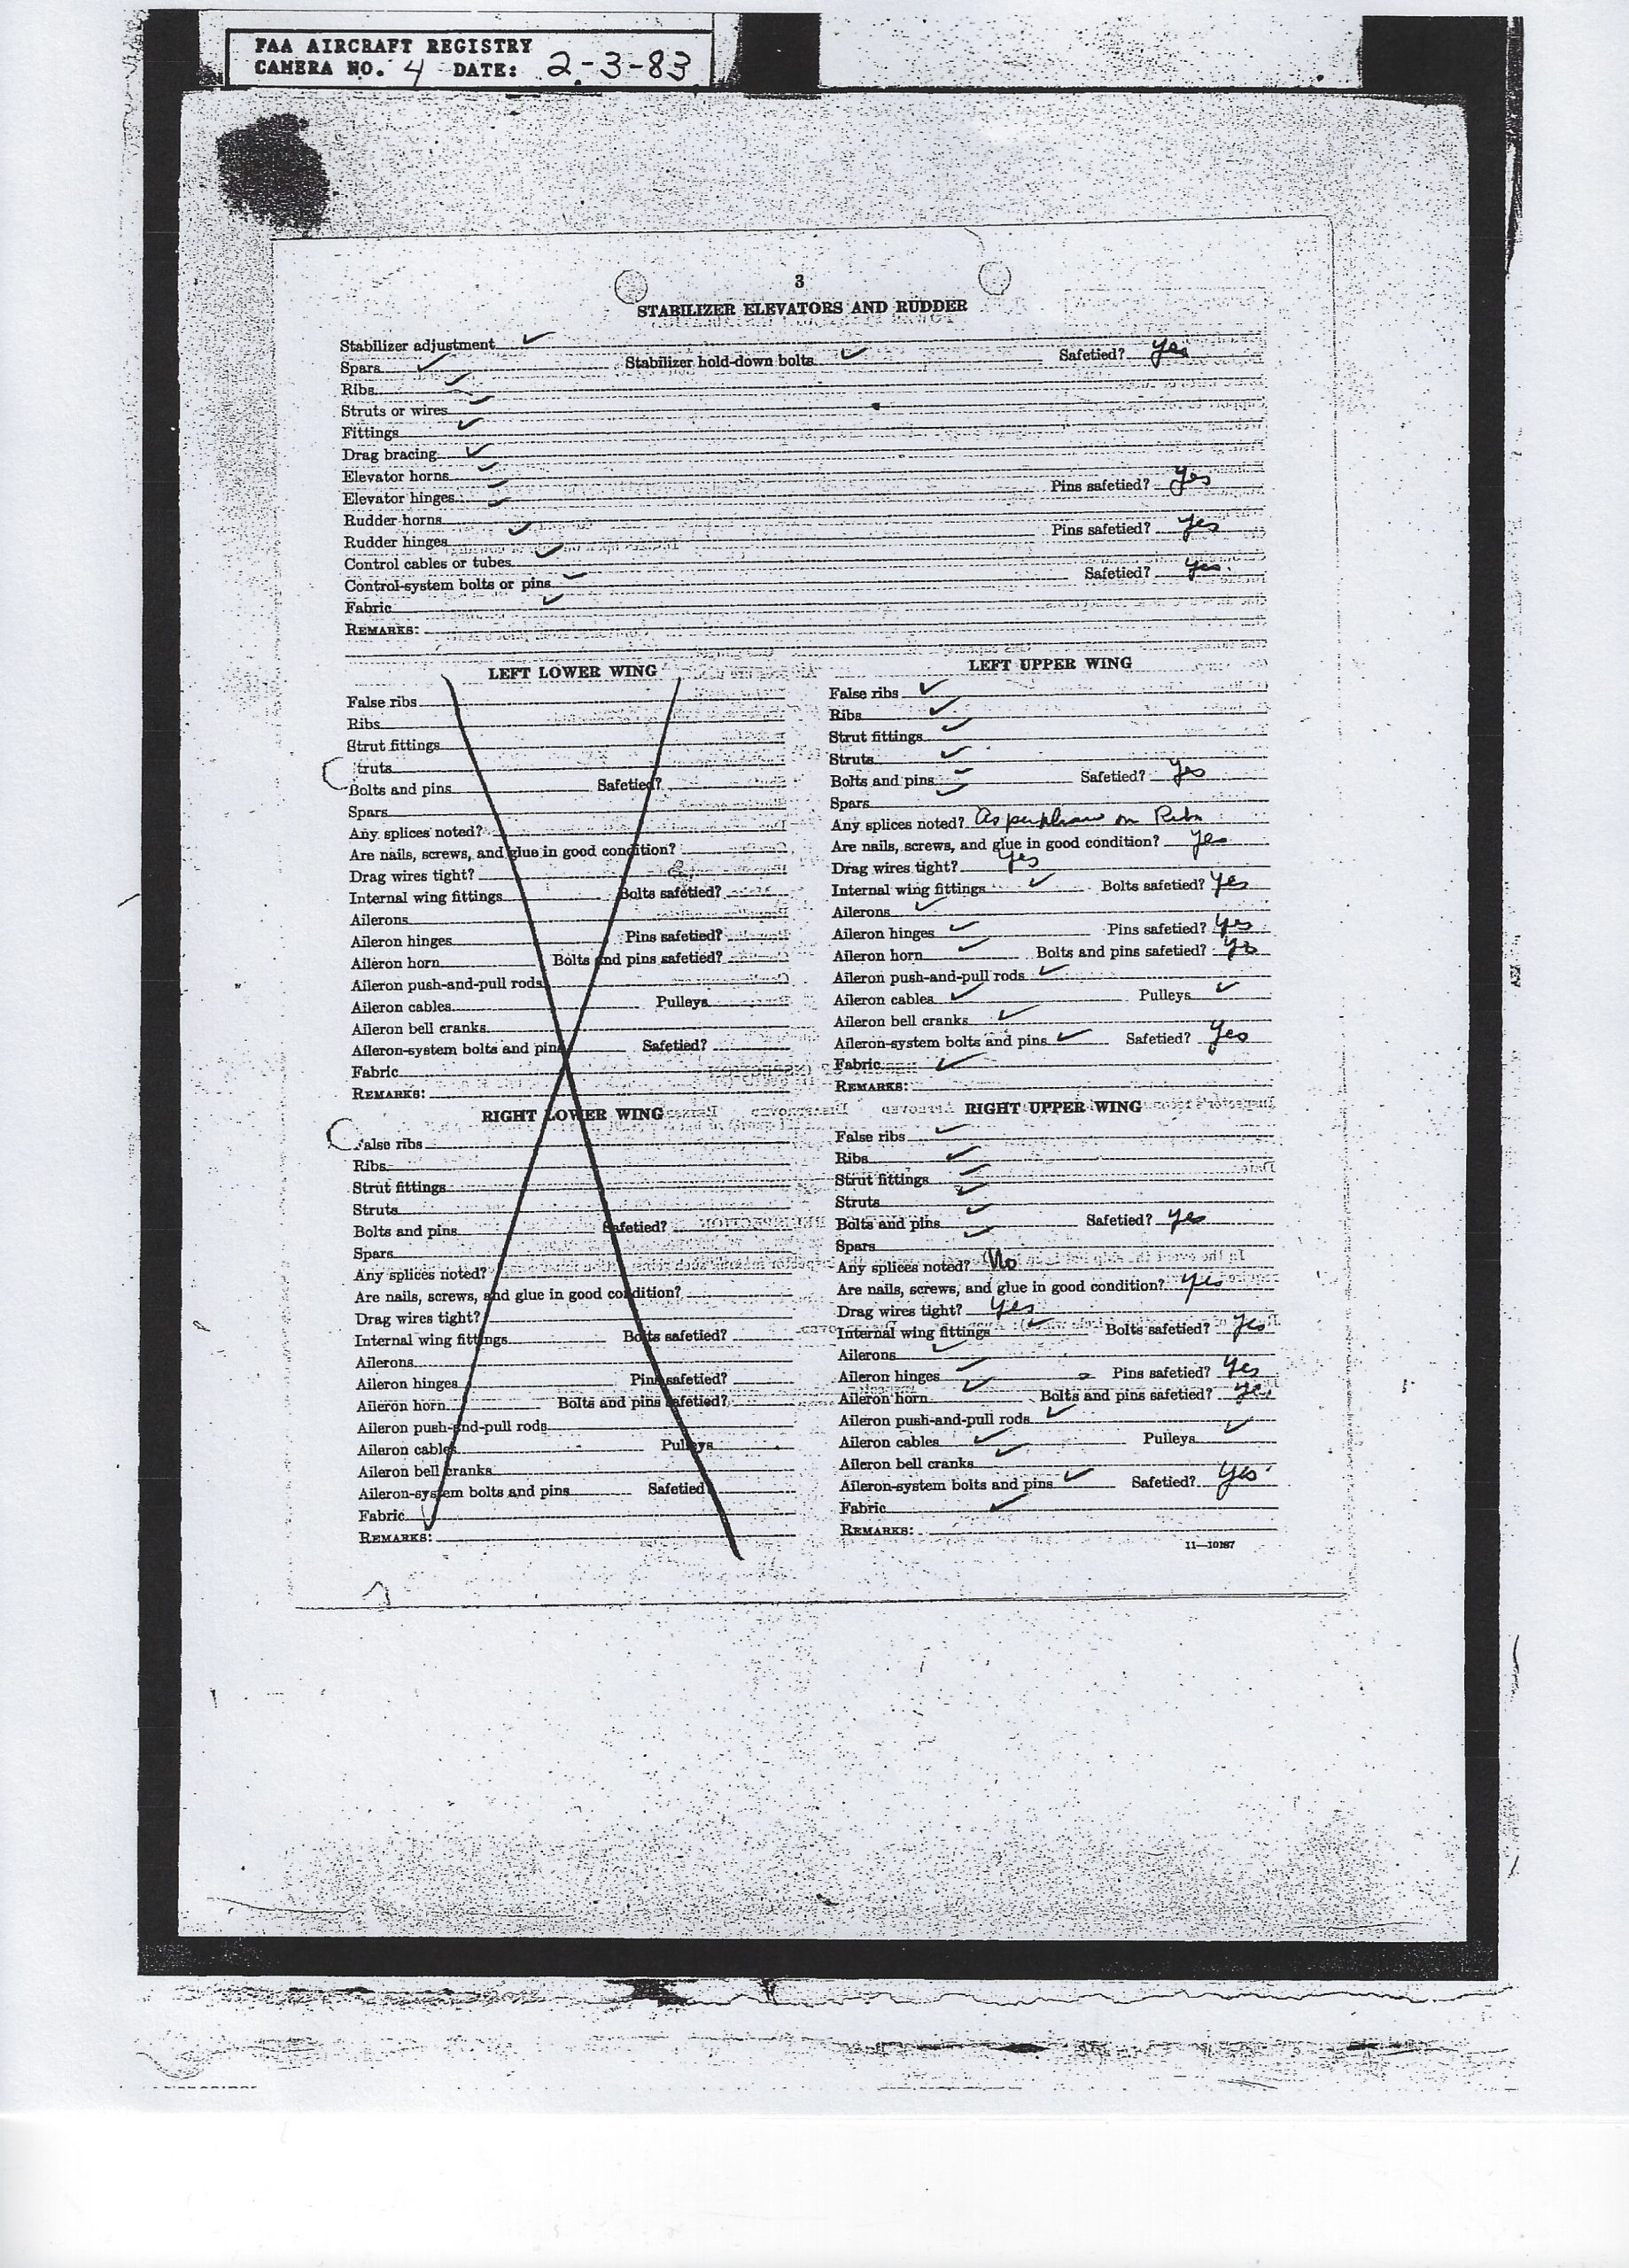 FAA AIRCRAFT REGISTRY
CAMERA NO. 4 DATE: 2-3-83
3
STABILIZER ELEVATORS AND RUDDER
Stabilizer adjustment ✓
Spars ✓ Stabilizer hold-down bolts ✓ Safetied? Yes
Ribs ✓
Struts or wires ✓
Fittings ✓
Drag bracing ✓
Elevator horns ✓
Elevator hinges ✓ Pins safetied? Yes
Rudder horns ✓
Rudder hinges ✓ Pins safetied? Yes
Control cables or tubes ✓
Control-system bolts or pins ✓ Safetied? Yes.
Fabric ✓
REMARKS:
LEFT LOWER WING
False ribs
Ribs
Strut fittings
truts
Bolts and pins Safetied?
Spars
Any splices noted?
Are nails, screws, and glue in good condition?
Drag wires tight?
Internal wing fittings Bolts safetied?
Ailerons
Aileron hinges Pins safetied?
Aileron horn Bolts and pins safetied?
Aileron push-and-pull rods
Aileron cables Pulleys
Aileron bell cranks
Aileron-system bolts and pins Safetied?
Fabric
REMARKS:
LEFT UPPER WING
False ribs ✓
Ribs ✓
Strut fittings ✓
Struts ✓
Bolts and pins ✓ Safetied? Yes
Spars ✓
Any splices noted? As per on Ribs
Are nails, screws, and glue in good condition? Yes
Drag wires tight? Yes
Internal wing fittings ✓ Bolts safetied? Yes
Ailerons ✓
Aileron hinges ✓ Pins safetied? Yes
Aileron horn ✓ Bolts and pins safetied? Yes
Aileron push-and-pull rods ✓
Aileron cables ✓ Pulleys ✓
Aileron bell cranks ✓
Aileron-system bolts and pins ✓ Safetied? Yes
Fabric ✓
REMARKS:
RIGHT LOWER WING
False ribs
Ribs
Strut fittings
Struts
Bolts and pins Safetied?
Spars
Any splices noted?
Are nails, screws, and glue in good condition?
Drag wires tight?
Internal wing fittings Bolts safetied?
Ailerons
Aileron hinges Pins safetied?
Aileron horn Bolts and pins safetied?
Aileron push-and-pull rods
Aileron cables Pulleys
Aileron bell cranks
Aileron-system bolts and pins Safetied
Fabric
REMARKS:
RIGHT UPPER WING
False ribs ✓
Ribs ✓
Strut fittings ✓
Struts ✓
Bolts and pins ✓ Safetied? Yes
Spars ✓
Any splices noted? No
Are nails, screws, and glue in good condition? Yes
Drag wires tight? Yes
Internal wing fittings ✓ Bolts safetied? Yes
Ailerons ✓
Aileron hinges ✓ Pins safetied? Yes
Aileron horn ✓ Bolts and pins safetied? Yes
Aileron push-and-pull rods ✓
Aileron cables ✓ Pulleys ✓
Aileron bell cranks ✓
Aileron-system bolts and pins ✓ Safetied? Yes
Fabric ✓
REMARKS:
11—10187